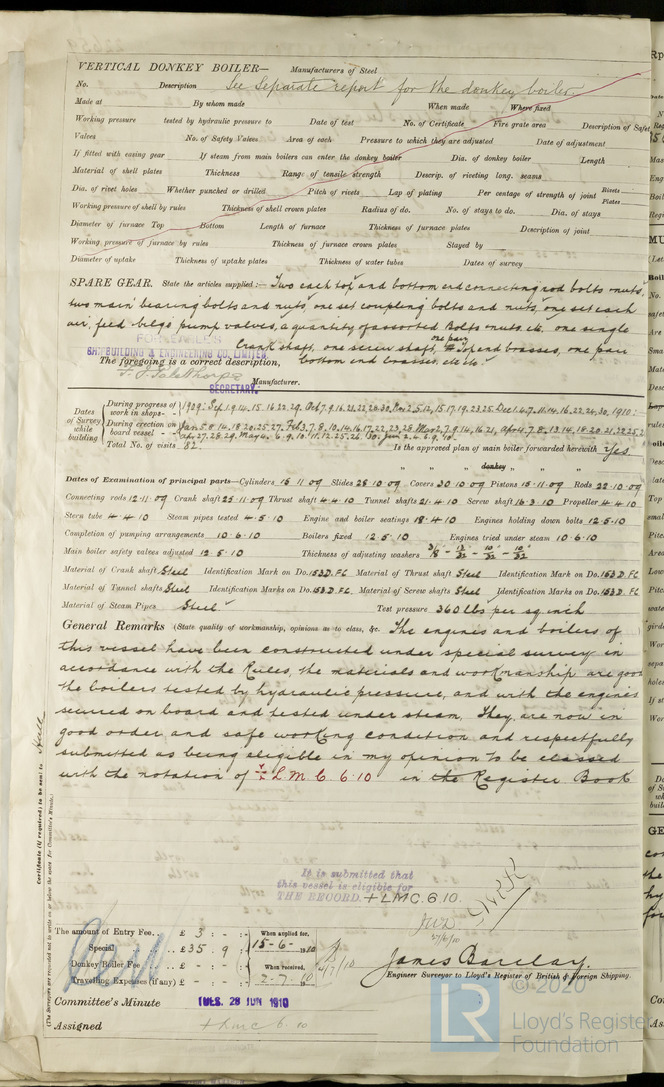 VERTICAL DONKEY BOILER— Manufacturers of Steel
No. Description See Separate report for the donkey boiler.
Made at By whom made When made Where fixed
Working pressure tested by hydraulic pressure to Date of test No. of Certificate Fire grate area Description of Safety
Valves No. of Safety Valves Area of each Pressure to which they are adjusted Date of adjustment
If fitted with easing gear If steam from main boilers can enter the donkey boiler Dia. of donkey boiler Length
Material of shell plates Thickness Range of tensile strength Descrip. of riveting long. seams
Dia. of rivet holes Whether punched or drilled Pitch of rivets Lap of plating Per centage of strength of joint Rivets Plates
Working pressure of shell by rules Thickness of shell crown plates Radius of do. No. of stays to do. Dia. of stays
Diameter of furnace Top Bottom Length of furnace Thickness of furnace plates Description of joint
Working pressure of furnace by rules Thickness of furnace crown plates Stayed by
Diameter of uptake Thickness of uptake plates Thickness of water tubes Dates of survey
SPARE GEAR. State the articles supplied:— Two each top and bottom end connecting rod bolts & nuts,
two main bearing bolts and nuts, one set coupling bolts and nuts, one set each
air, feed bilge pump valves, a quantity of assorted bolts & nuts etc. one single
Crank shaft, one screw shaft, one pair Top end brasses, one pair
bottom end brasses, etc etc
SHIPBUILDING & ENGINEERING CO. LIMITED.
The foregoing is a correct description,
Manufacturer.
SECRETARY.
Dates of Survey while building
During progress of work in shops - - 1909: Sep. 1.9.14.15.16.22.29. Oct 7.9.16.21.22.20.30. Nov 2.5.12.15.17.19.23.25. Dec 1.4.7.11.14.16.22.24.30. 1910:
During erection on board vessel - - - Jan 5.8.14.18.20.25.27. Feb 3.7.8.10.14.16.17.22.23.28 Mar 2.7.9.14.16.21. Apr 4.7.8.13.14.18.20.21.22.25.2
Apr 27.28.29. May 4.6.9.10.11.12.25.26.30. Jun 2.4.6.9.10.
Total No. of visits 82. Is the approved plan of main boiler forwarded herewith Yes
" " donkey " " "
Dates of Examination of principal parts—Cylinders 15 11 09 Slides 28 10 09 Covers 30 10 09 Pistons 15 11 09 Rods 22 10 09
Connecting rods 12 11 09 Crank shaft 25 11 09 Thrust shaft 4 4 10 Tunnel shafts 21 4 10 Screw shaft 16 3 10 Propeller 4 4 10
Stern tube 4 4 10 Steam pipes tested 4 5 10 Engine and boiler seatings 18 4 10 Engines holding down bolts 12 5 10
Completion of pumping arrangements 10 6 10 Boilers fixed 12 5 10 Engines tried under steam 10 6 10
Main boiler safety valves adjusted 12 5 10 Thickness of adjusting washers
Material of Crank shaft Steel Identification Mark on Do. 153 D.FC Material of Thrust shaft Steel Identification Mark on Do. 153 D.FC
Material of Tunnel shafts Steel Identification Marks on Do. 153 D.FC Material of Screw shafts Steel Identification Marks on Do. 153 D.FC
Material of Steam Pipes Steel Test pressure 360 lbs per sq inch
General Remarks (State quality of workmanship, opinions as to class, &c. The engines and boilers of
this vessel have been constructed under special survey in
accordance with the Rules, the materials and workmanship are good
the boilers tested by hydraulic pressure, and with the engines
secured on board and tested under steam. They are now in
good order and safe working condition and respectfully
submitted as being eligible in my opinion to be classed
with the notation of + L M C 6.10 in the Register Book
Certificate (if required) to be sent to Hull
(The Surveyors are requested not to write on or below the space for Committee's Minute.)
It is submitted that
this vessel is eligible for
THE RECORD. + LMC. 6.10.
The amount of Entry Fee.. £ 3 : - : When applied for,
Special .. .. £ 35 . 9 : 15-6- 1910
Donkey Boiler Fee .. .. £ - : - : When received,
Travelling Expenses (if any) £ - : - : 2-7- 1910
James Barclay.
Engineer Surveyor to Lloyd's Register of British & Foreign Shipping.
Committee's Minute TUES. 28 JUN 1910
Assigned + LMC 6.10
© 2020
LR Lloyd's Register
Foundation